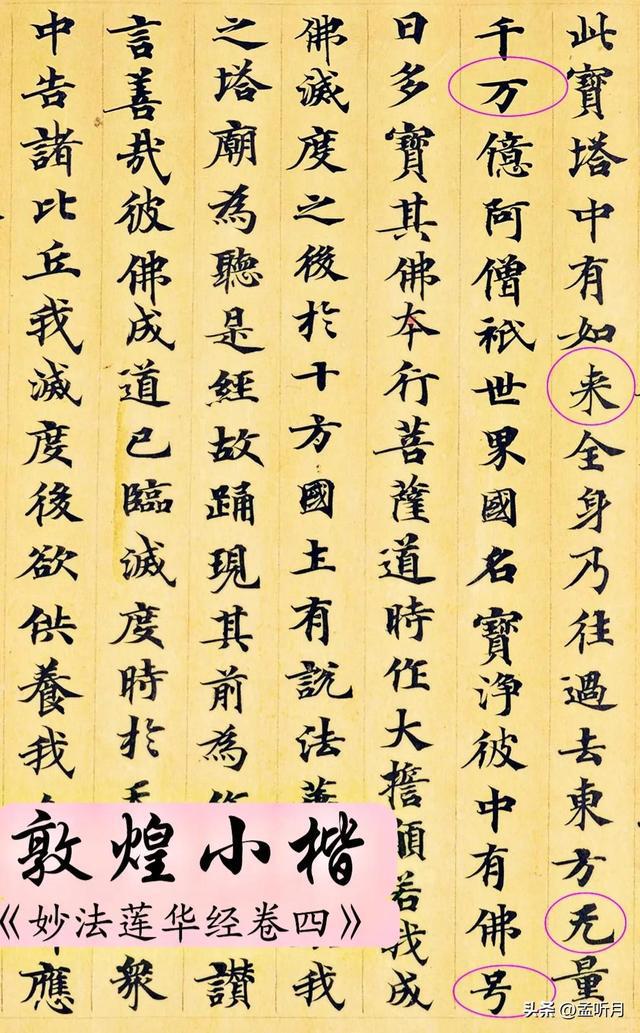 此寶塔中有如来全身乃往過去東方无量
千万億阿僧祇世界國名寶浄彼中有佛号
曰多寶其佛夲行菩薩道時作大誓願若我成
佛滅度之後於十方國土有說法我
之塔廟為聽是經故踊現其前為讃
言善哉彼佛成道已臨滅度時於衆
中告諸比丘我滅度後欲供養我應
敦煌小楷
《妙法莲华经卷四》
头条 @孟听月